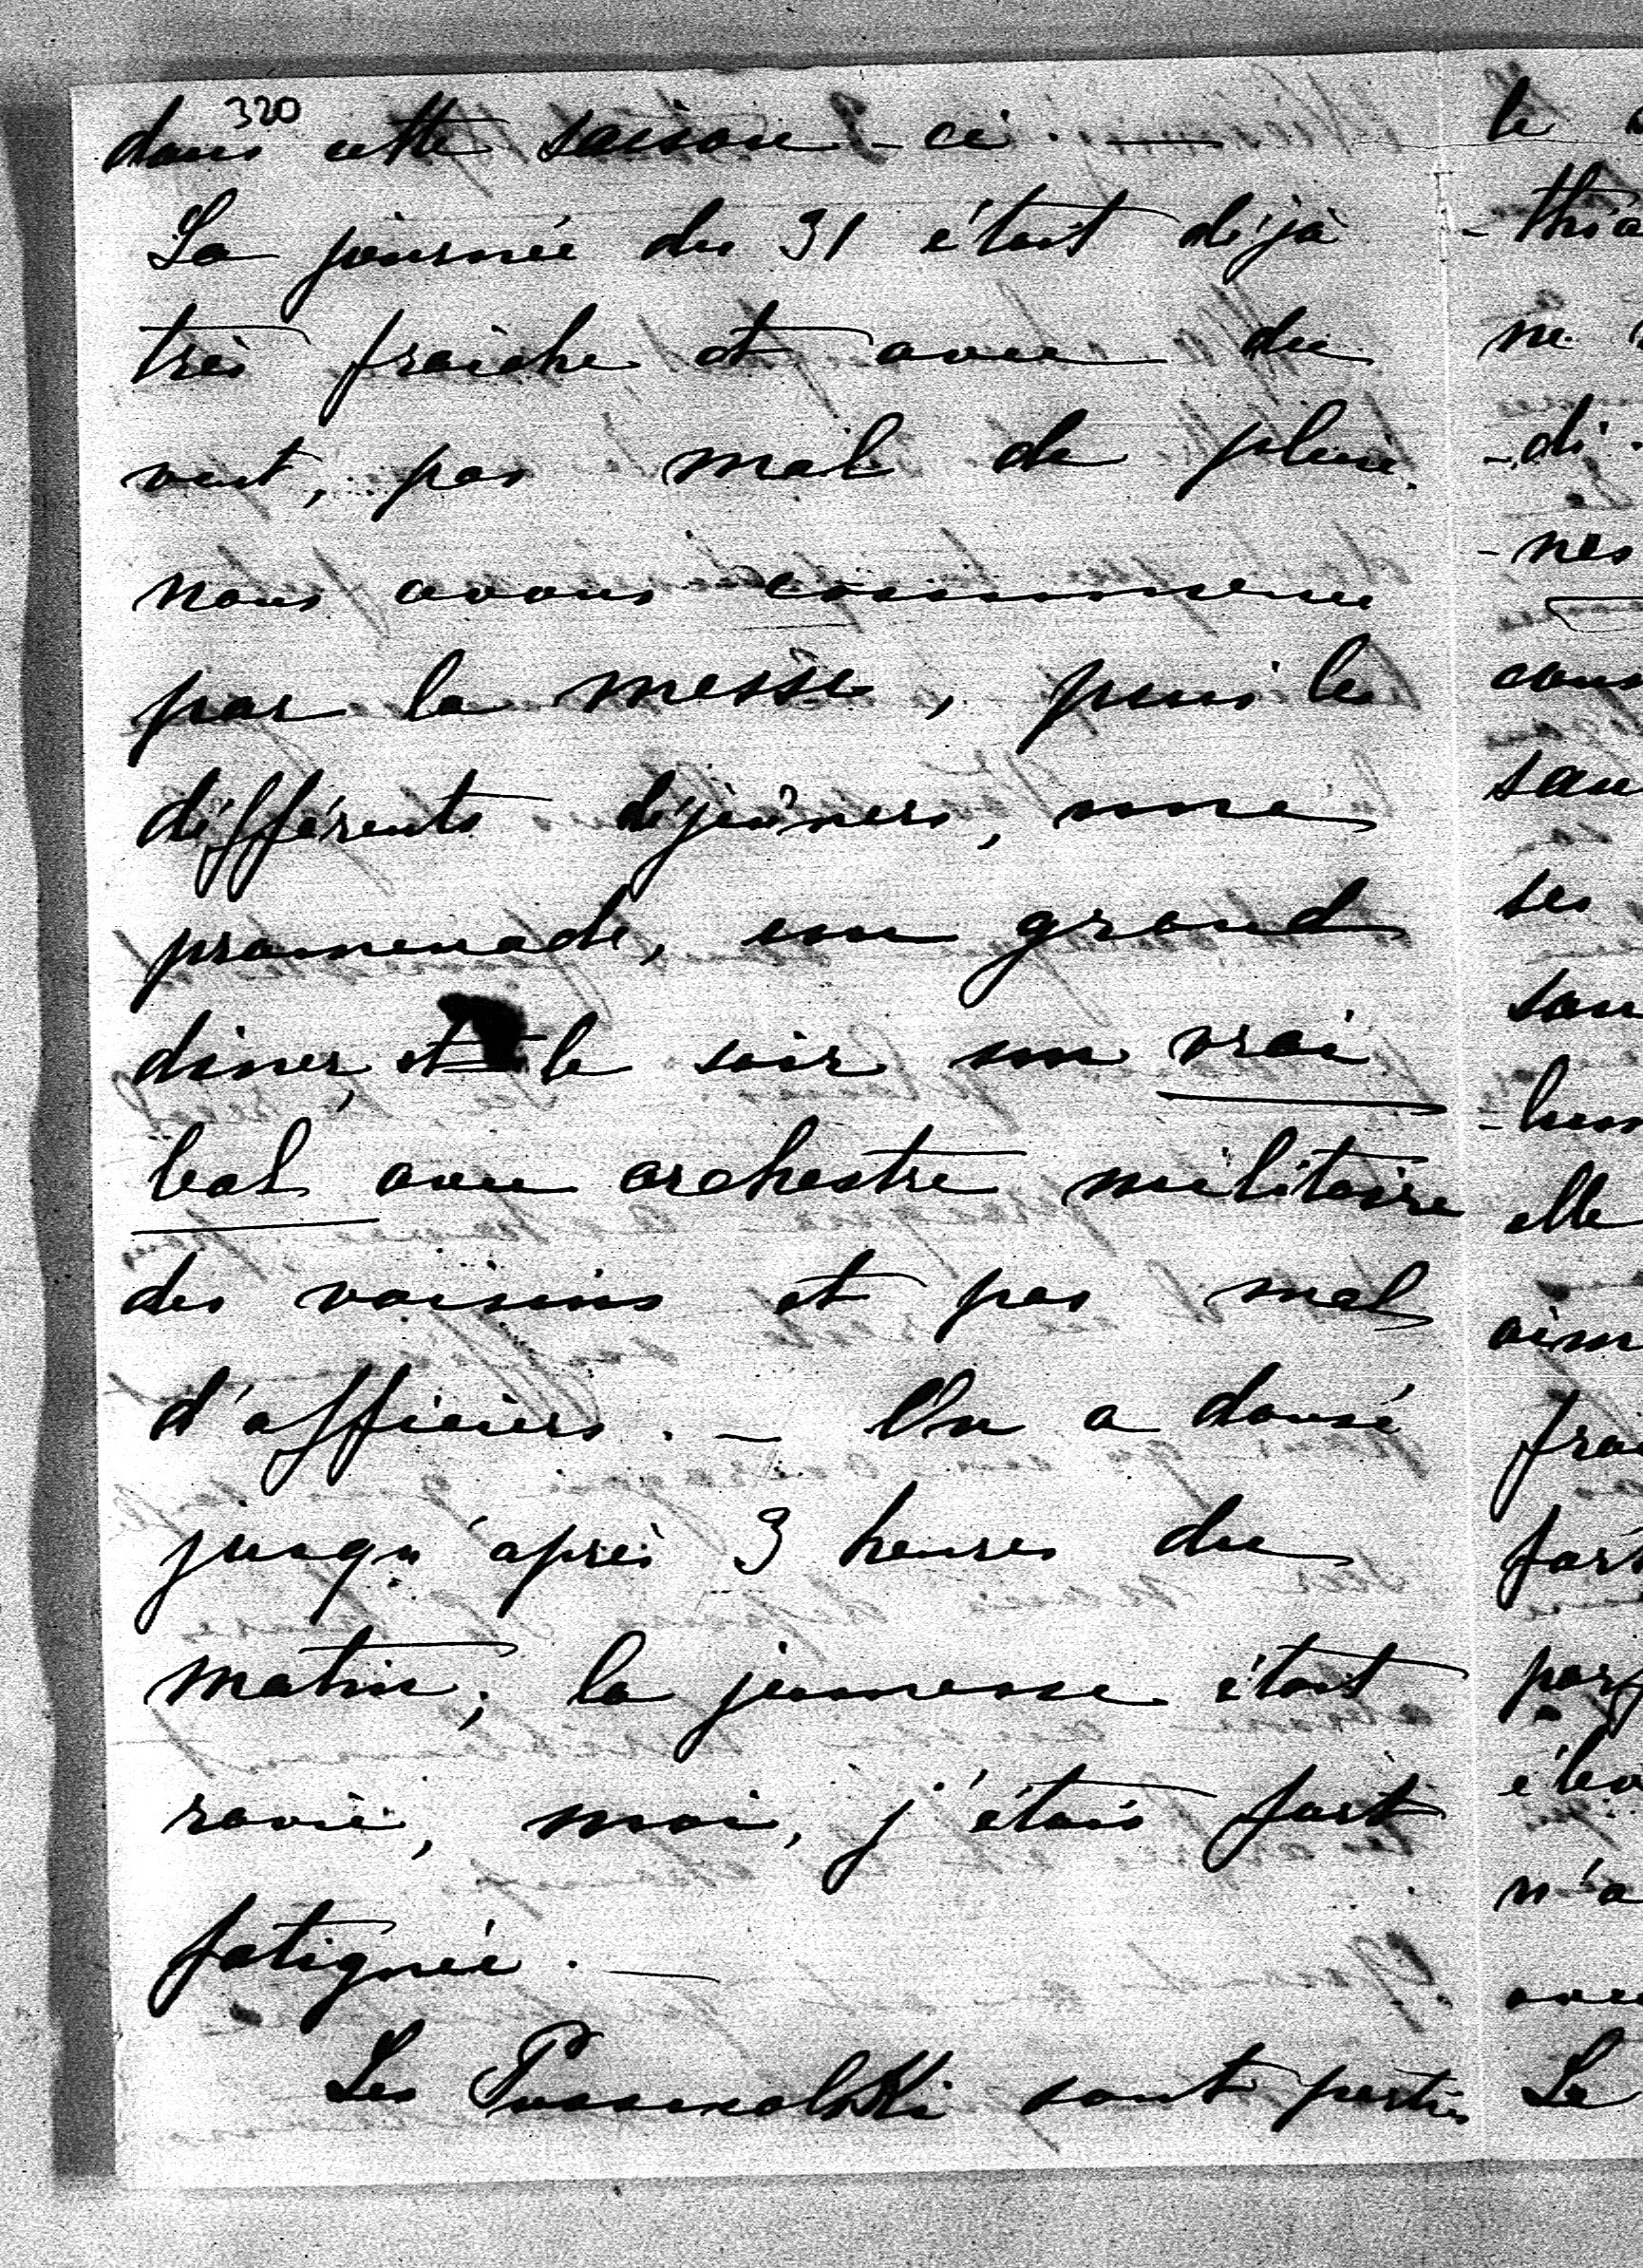 320
dans cette saison-ci. —
La journée du 31 était déjà
très fraîche et avec du
vent, pas mal de pluie.
nous avons commencé
par la messe, puis les
différents déjeûners, une
promenade, un grand
diner, et le soir un vrai
bal avec orchestre militaire
des voisins et pas mal
d'officiers. — On a dansé
jusqu'après 3 heures du
matin; la jeunesse était
ravie, moi, j'étais fort
fatiguée. —
Les sont partis